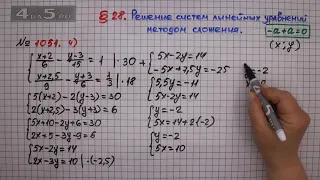 4АБ5.РФ
§ 28. Решение систем линейных уравнений
методом сложения.
-a+a=0
(x; y)
№ 1051. 4)
{ (x+2)/6 - (y-3)/15 = 1 | ·30
{ (x+2,5)/9 - (y+3)/6 = 1/3 | ·18
{ 5(x+2)-2(y-3)=30
{ 2(x+2,5)-3(y+3)=6
{ 5x+10-2y+6=30
{ 2x+5-3y-9=6
{ 5x-2y=14
{ 2x-3y=10 | ·(-2,5)
+ { 5x-2y=14
{ -5x+7,5y=-25
{ 5,5y=-11
{ 5x-2y=14
{ y=-2
{ 5x=14+2·(-2)
{ y=-2
{ 5x=10
=-2